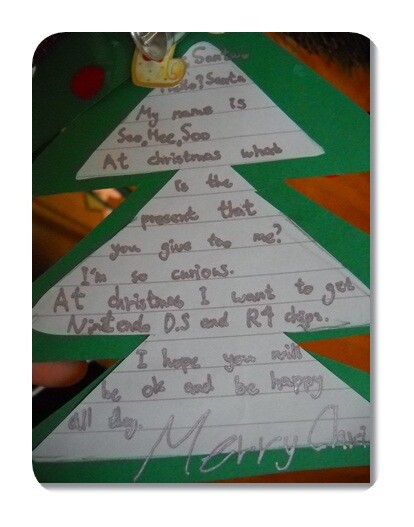 Santa
Hello? Santa
My name is
Seo, Hee, Soo
At christmas what
is the
present that
you give to me?
I'm so curious.
At christmas I want to get
Nintendo D.S and R4 chips.
I hope you will
be ok and be happy
all day.
Merry Chri